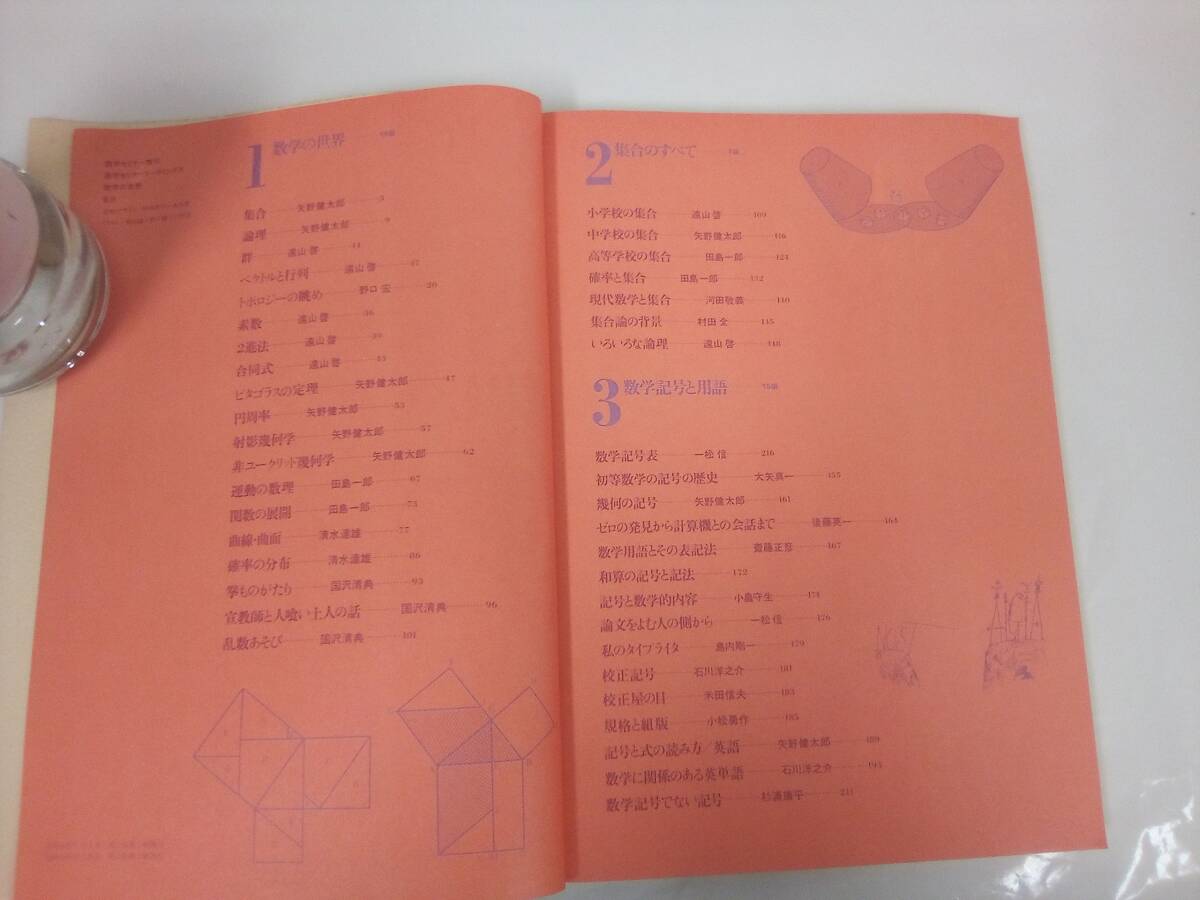 数学セミナー増刊
数学セミナー・リーディングス
数学の世界
1 数学の世界
集合 矢野健太郎 3
論理 矢野健太郎 9
群 遠山 啓 11
ベクトルと行列 遠山 啓 17
トポロジーの眺め 野口 宏 26
素数 遠山 啓 36
2進法 遠山 啓 39
合同式 遠山 啓 43
ピタゴラスの定理 矢野健太郎 47
円周率 矢野健太郎 53
射影幾何学 矢野健太郎 57
非ユークリッド幾何学 矢野健太郎 62
運動の数理 田島一郎 67
関数の展開 田島一郎 73
曲線・曲面 清水達雄 77
確率の分布 清水達雄 86
拳ものがたり 国沢清典 93
宣教師と人喰い土人の話 国沢清典 96
乱数あそび 国沢清典 101
2 集合のすべて
小学校の集合 遠山 啓 109
中学校の集合 矢野健太郎 116
高等学校の集合 田島一郎 124
確率と集合 田島一郎 132
現代数学と集合 河田敬義 140
集合論の背景 村田 全 145
いろいろな論理 遠山 啓 148
3 数学記号と用語
数学記号表 一松 信 216
初等数学の記号の歴史 大矢真一 155
幾何の記号 矢野健太郎 161
ゼロの発見から計算機との会話まで 後藤英一 164
数学用語とその表記法 齋藤正彦 167
和算の記号と記法 172
記号と数学的内容 小島守生 174
論文をよむ人の側から 一松 信 176
私のタイプライタ 島内剛一 179
校正記号 石川洋之介 181
校正屋の目 米田信夫 183
規格と組版 小松勇作 185
記号と式の読み方/英語 矢野健太郎 189
数学に関係のある英単語 石川洋之介 193
数学記号でない記号 杉浦康平 211